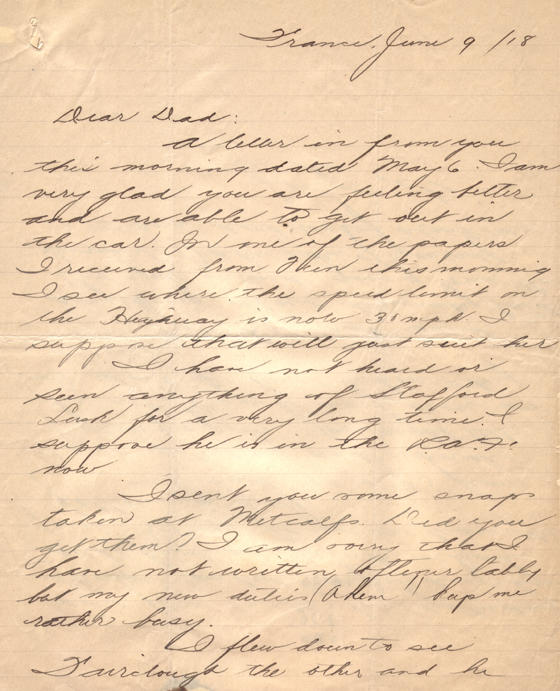 France, June 9 /18
Dear Dad:
A letter in from you
this morning dated May 6. I am
very glad you are feeling better
and are able to get out in
the car. In one of the papers
I received from this morning
I see where the speed limit on
the Highway is now mph. I
suppose that will just suit her
I have not heard or
seen anything of Stafford
for a very long time. I
suppose he is in the R.A.F.
now
I sent you some snaps
taken at Metcalfs. Did you
get them? I am sorry that I
have not written lately
but my new duties (Ahem!) keep me
rather busy.
I flew down to see
Fairclough the other and he